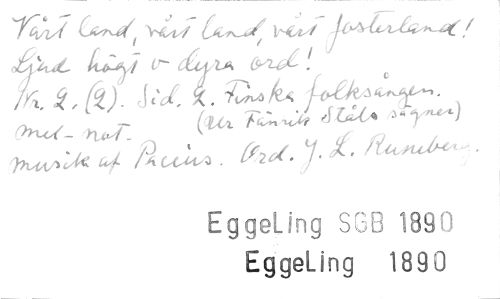 Vårt land, vårt land, vårt fosterland!
Ljud högt o dyra ord!
Nr. 2. (2). Sid. 2. Finska folksången.
(ur Fänrik Ståls sägner)
mel-not.
musik af Pacius. Ord. J. L. Runeberg.
EggeLing SGB 1890
EggeLing 1890